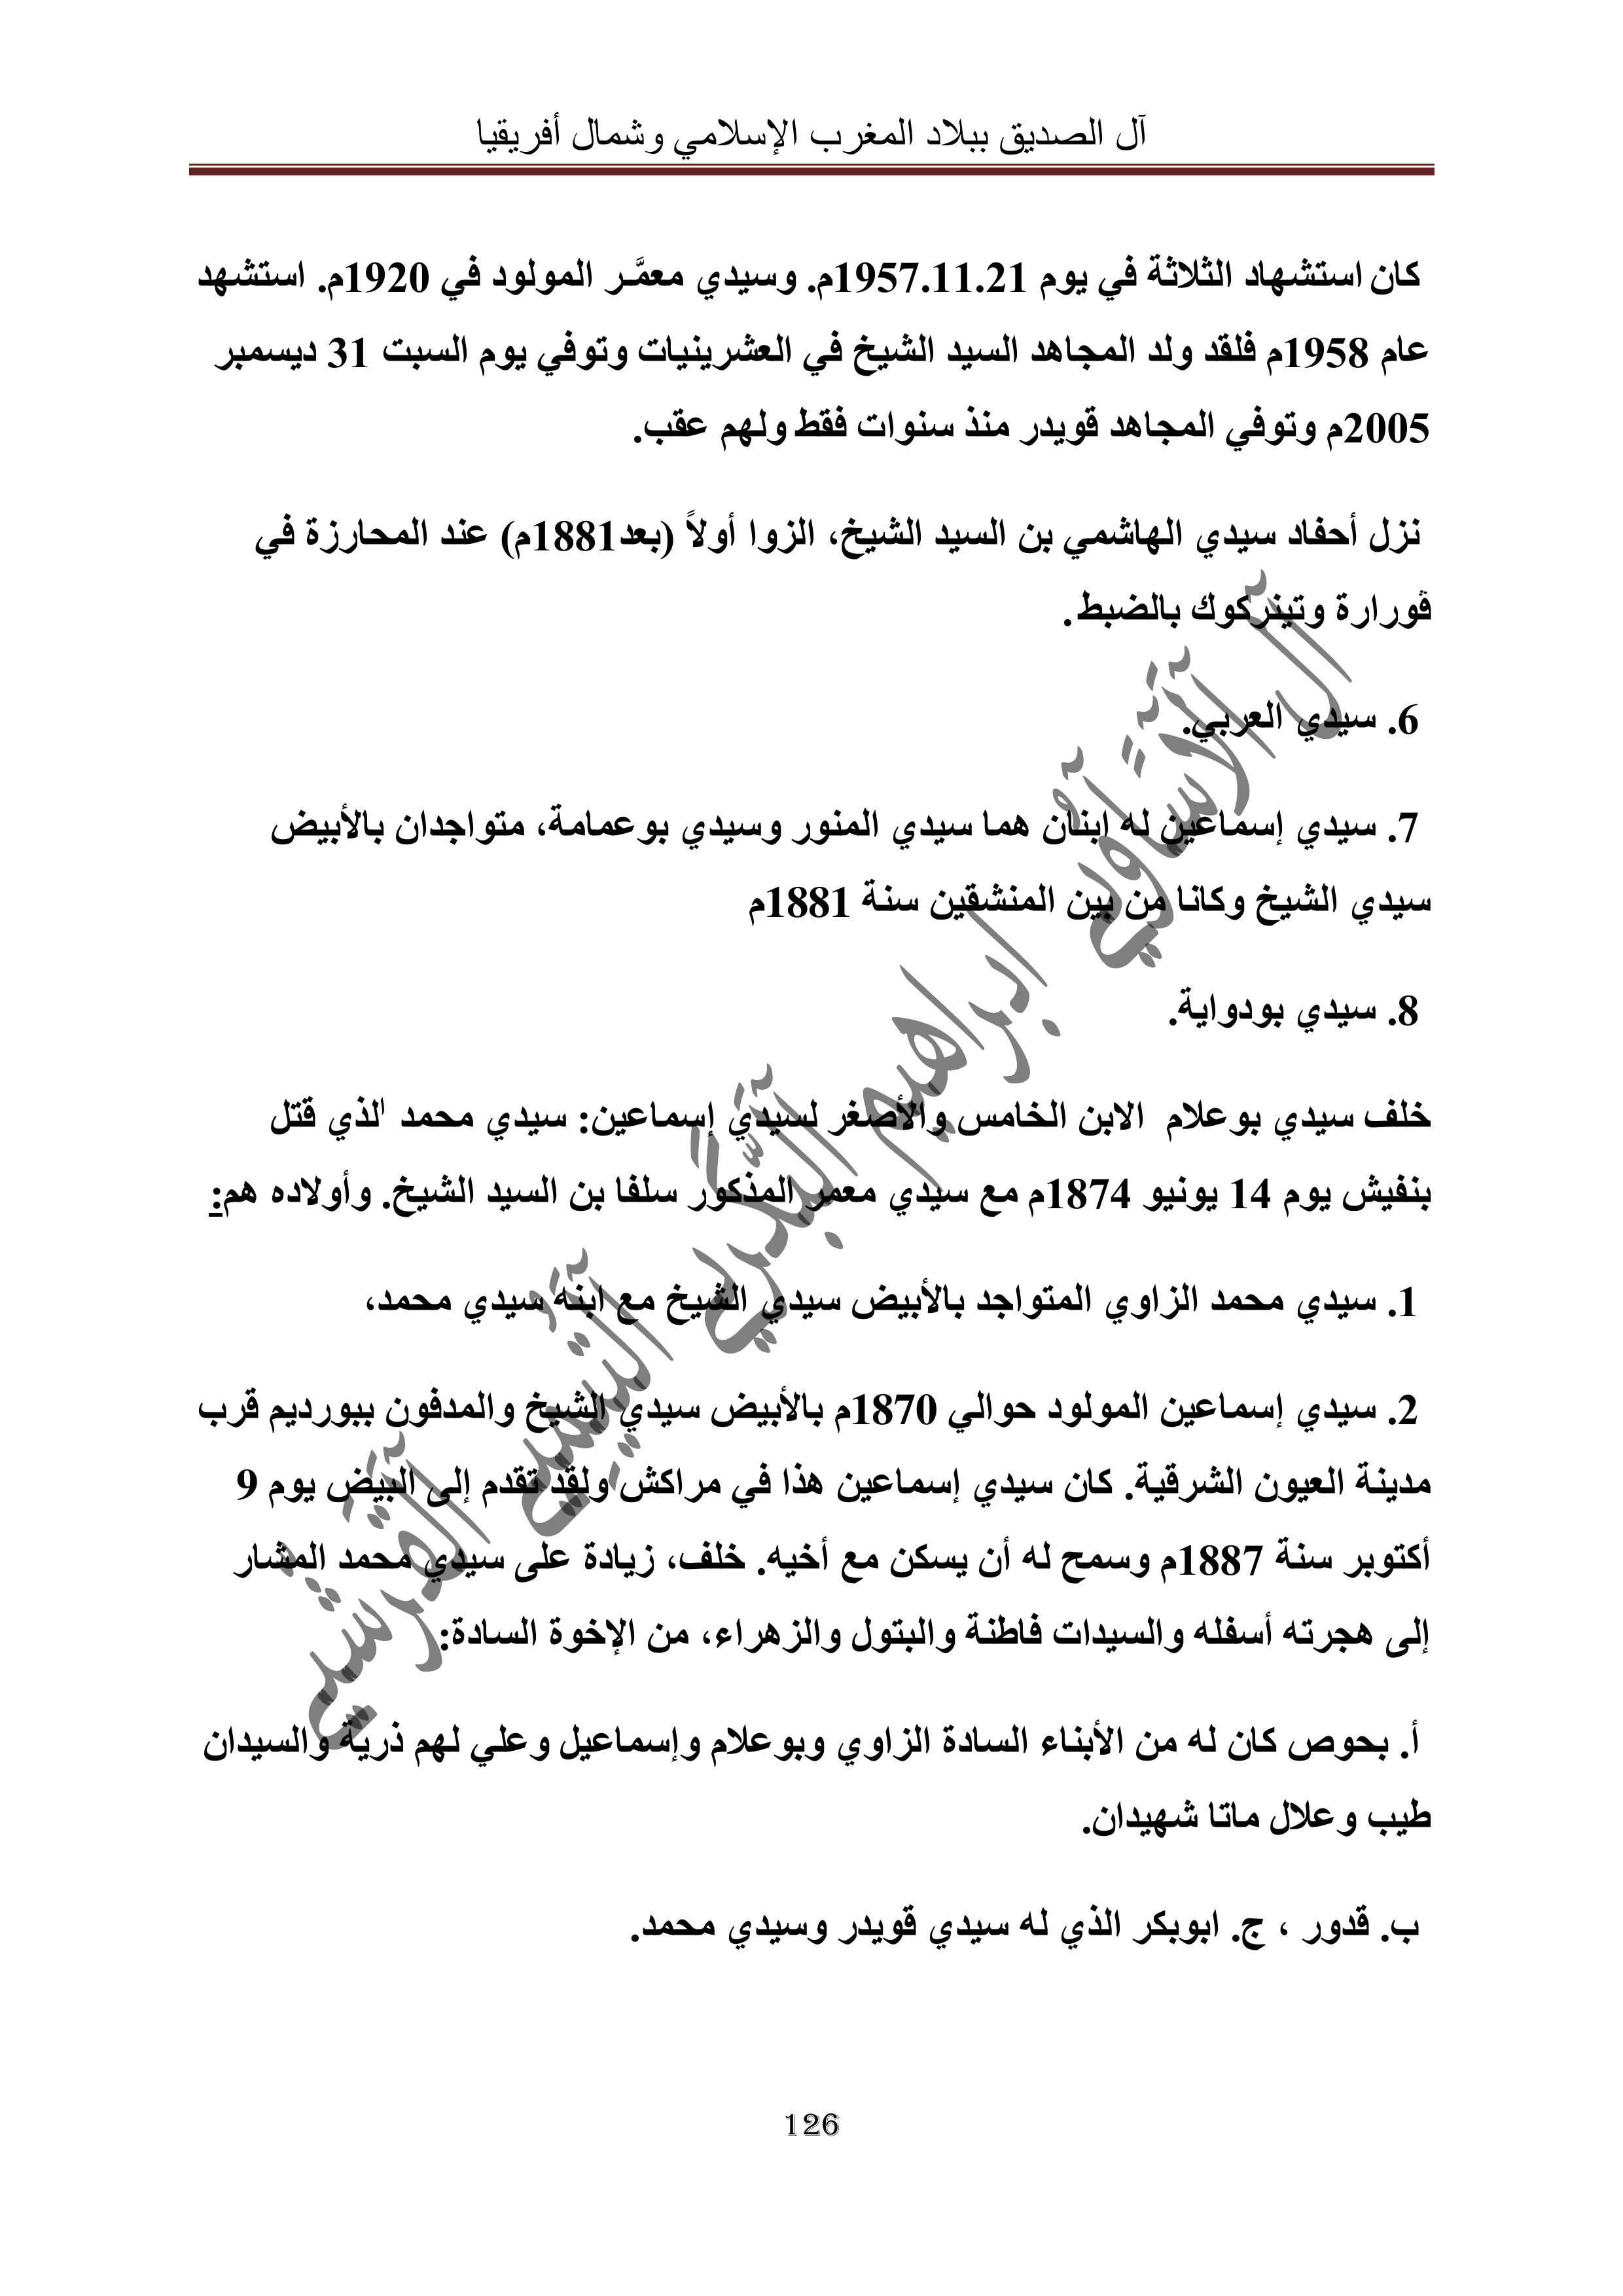 آل الصديق ببلاد المغرب الإسلامي وشمال أفريقيا
كان استشهاد الثلاثة في يوم 1957.11.21م. وسيدي معمَّـر المولود في 1920م. استشهد
عام 1958م فلقد ولد المجاهد السيد الشيخ في العشرينيات وتوفي يوم السبت 31 ديسمبر
2005م وتوفي المجاهد قويدر منذ سنوات فقط ولهم عقب.
نزل أحفاد سيدي الهاشمي بن السيد الشيخ، الزوا أولاً (بعد1881م) عند المحارزة في
ڤورارة وتينركوك بالضبط.
6. سيدي العربي.
7. سيدي إسماعين له ابنان هما سيدي المنور وسيدي بوعمامة، متواجدان بالأبيض
سيدي الشيخ وكانا من بين المنشقين سنة 1881م
8. سيدي بودواية.
خلف سيدي بوعلام الابن الخامس والأصغر لسيدي إسماعين: سيدي محمد الذي قتل
بنفيش يوم 14 يونيو 1874م مع سيدي معمر المذكور سلفا بن السيد الشيخ. وأولاده هم:
1. سيدي محمد الزاوي المتواجد بالأبيض سيدي الشيخ مع ابنه سيدي محمد،
2. سيدي إسماعين المولود حوالي 1870م بالأبيض سيدي الشيخ والمدفون ببورديم قرب
مدينة العيون الشرقية. كان سيدي إسماعين هذا في مراكش ولقد تقدم إلى البيض يوم 9
أكتوبر سنة 1887م وسمح له أن يسكن مع أخيه. خلف، زيادة على سيدي محمد المشار
إلى هجرته أسفله والسيدات فاطنة والبتول والزهراء، من الإخوة السادة:
أ. بحوص كان له من الأبناء السادة الزاوي وبوعلام وإسماعيل وعلي لهم ذرية والسيدان
طيب وعلال ماتا شهيدان.
ب. قدور ، ج. ابوبكر الذي له سيدي قويدر وسيدي محمد.
126